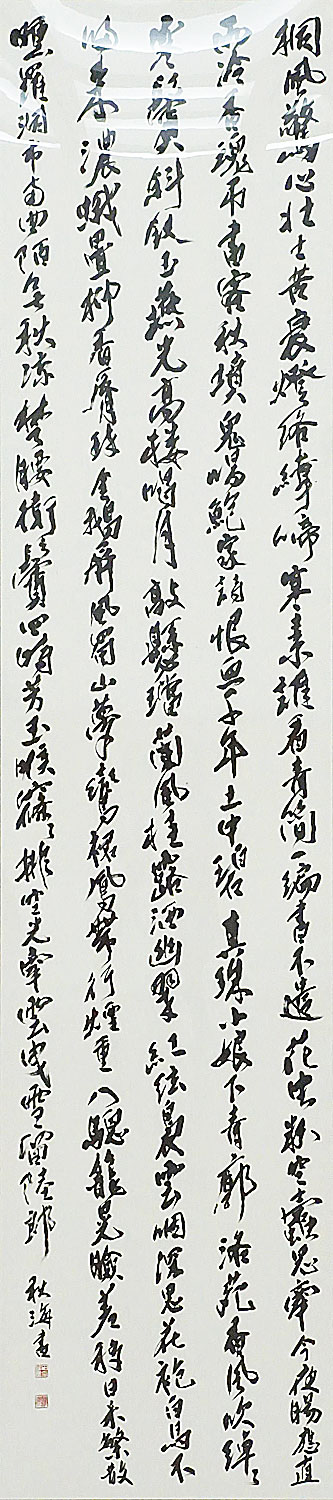 桐風驚心壯士苦衰燈絡緯啼寒素誰看青簡一編書不遣花虫粉空蠹思牽今夜腸應直
雨冷香魂吊書客秋墳鬼唱鮑家詩恨血千年土中碧真珠小娘下青廓洛苑香風吹綽〻
寒鬢斜釵玉燕光高樓唱月敲懸璫蘭風桂露洒幽翠紅弦裊雲咽深思花袍白馬不
歸來濃蛾疊柳香脣醉金鵝屏風蜀山夢鸞裾鳳帶行煙重八驄籠晃臉差移日絲繁散
曛羅洞市南曲陌無秋涼楚腰衛鬢四時芳玉喉窱〻排空光牽雲曳雪留陸郎
秋海書